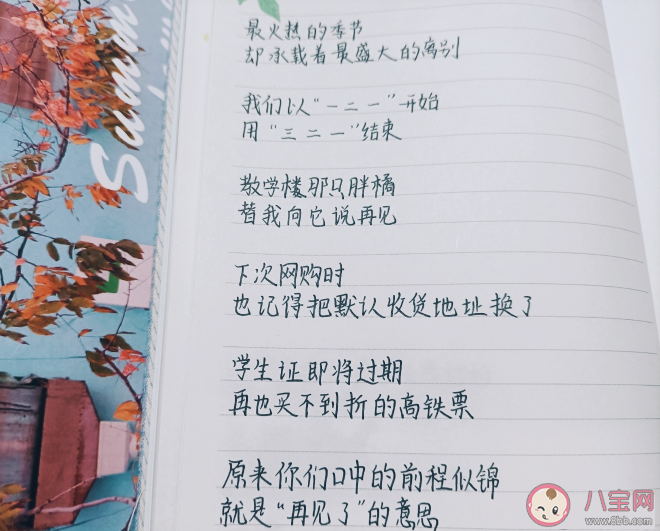 Summ
最火热的季节
却承载着最盛大的离别
我们以“一二一”开始
用“三二一”结束
教学楼那只胖橘
替我向它说再见
下次网购时
也记得把默认收货地址换了
学生证即将过期
再也买不到折的高铁票
原来你们口中的前程似锦
就是“再见了”的意思
八宝网
www.8bb.com